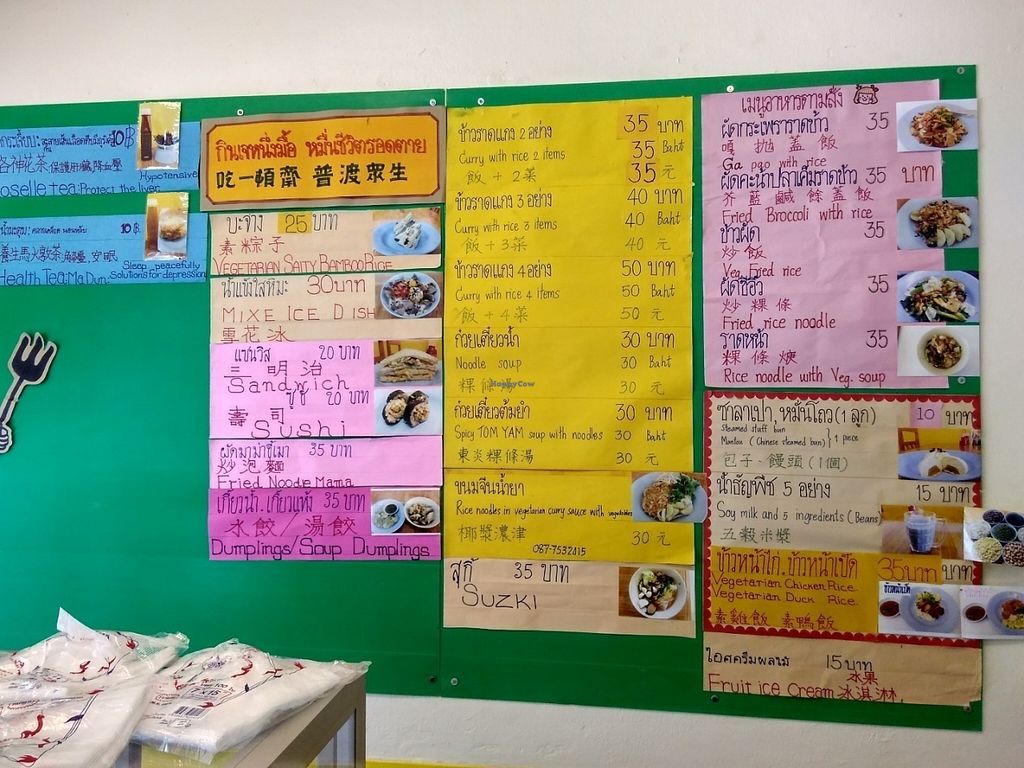 10 ฿
各神花茶 保護肝臟,降血壓
oselle tea: Protect the liver
Hypotensive
10 ฿.
養生馬火敦茶
Health Tea: Ma Dun
Sleep peacefully
Solutions for depression
กินเจหนึ่งมื้อ หมื่นชีวิตรอดตาย
吃一頓齋 普渡眾生
บะจ่าง 25 บาท
素粽子
VEGETARIAN SALTY BAMBOO RICE
น้ำแข็งไสหิมะ 30บาท
MIXE ICE DISH
雪花冰
แซนวิส 20 บาท
三明治
Sandwich
ซูชิ 20 บาท
壽司
Sushi
ผัดมาม่าขี้เมา 35 บาท
炒泡麵
Fried Noode Mama
เกี๊ยวน้ำ.เกี๊ยวแห้ง 35 บาท
水餃/湯餃
Dumplings/Soup Dumplings
ข้าวราดแกง 2 อย่าง 35 บาท
Curry with rice 2 items 35 Baht
飯+2菜 35 元
ข้าวราดแกง 3 อย่าง 40 บาท
Curry with rice 3 items 40 Baht
飯+3菜 40 元
ข้าวราดแกง 4 อย่าง 50 บาท
Curry with rice 4 items 50 Baht
飯+4菜 50 元
ก๋วยเตี๋ยวน้ำ 30 บาท
Noodle soup 30 Baht
粿條 30 元
HappyCow
ก๋วยเตี๋ยวต้มยำ 30 บาท
Spicy TOM YAM soup with noodles 30 Baht
東炎粿條湯 30 元
ขนมจีนน้ำยา
Rice noodles in vegetarian curry sauce with vegetables
椰漿濃津 30 元
087-7532415
สุกี้ 35 บาท
SUZKI
เมนูอาหารตามสั่ง
ผัดกระเพราราดข้าว 35
嘎拋蓋飯
Ga pao with rice
ผัดคะน้าปลาเค็มราดข้าว 35 บาท
芥藍鹹餘蓋飯
Fried Broccoli with rice
ข้าวผัด 35
炒飯
Veg. Fried rice
ผัดซีอิ๊ว 35
炒粿條
Fried rice noodle
ราดหน้า 35
粿條焿
Rice noodle with Veg. soup
ซาลาเปา,หมั่นโถว (1 ลูก) 10 บาท
Steamed stuff bun
Mantou (Chinese steamed bun) } 1 piece
包子.饅頭 (1個)
น้ำธัญพืช 5 อย่าง 15 บาท
Soy milk and 5 ingredients (Beans)
五穀米漿
ข้าวหน้าไก่.ข้าวหน้าเป็ด 35บาท บาท
Vegetarian Chicken Rice
Vegetarian Duck Rice
素雞飯 素鴨飯
ข้าวหน้าเป็ด
ไอศครีมผลไม้ 15บาท
水果
Fruit ice cream 冰淇淋